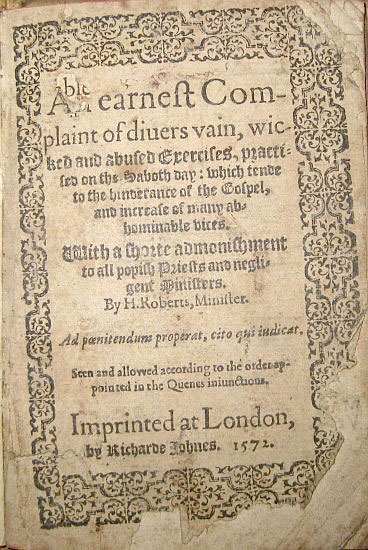 ble
An earneſt Com-
plaint of diuers vain, wic-
ked and abuſed Exerciſes, practi-
ſed on the Saboth day: which tende
to the hinderance of the Goſpel,
and increaſe of many ab-
hominable vices.
With a ſhorte admoniſhment
to all popiſh Prieſts and negli-
gent Miniſters.
By H. Roberts, Miniſter.
Ad pœnitendum properat, cito qui iudicat.
Seen and allowed according to the order ap-
pointed in the Quenes iniunctions.
Imprinted at London,
by Richarde Johnes. 1572.